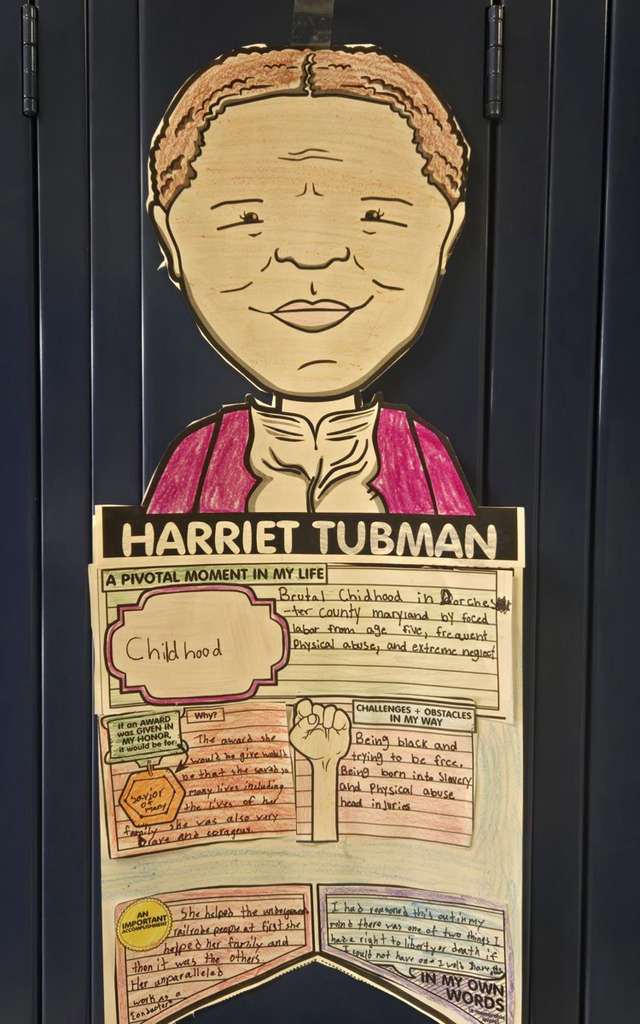 HARRIET TUBMAN
A PIVOTAL MOMENT IN MY LIFE
Childhood
Brutal Chidhood in Dorches
-ter County maryland by foced
labor from age five, frequent
Physical abuse, and extreme neglect
If an AWARD
was GIVEN IN
MY HONOR,
it would be for
savior
of
many
Why?
The award she
would be give would
be that she saved so
many lives including
the lives of her
family she was also very
Brave and corageus
CHALLENGES + OBSTACLES
IN MY WAY
Being black and
trying to be free.
Being born into Slavery
and Physical abuse
head injuries
AN
IMPORTANT
ACCOMPLISHMENT
She helped the underground
railroke people at first she
helped her farily and
then it was the others.
Her unparalleled
work as a
Conductors
I had reasoned this out in my
mind there was one of two things I
had a right to liberty or death if
I could not have one I
IN MY OWN
WORDS